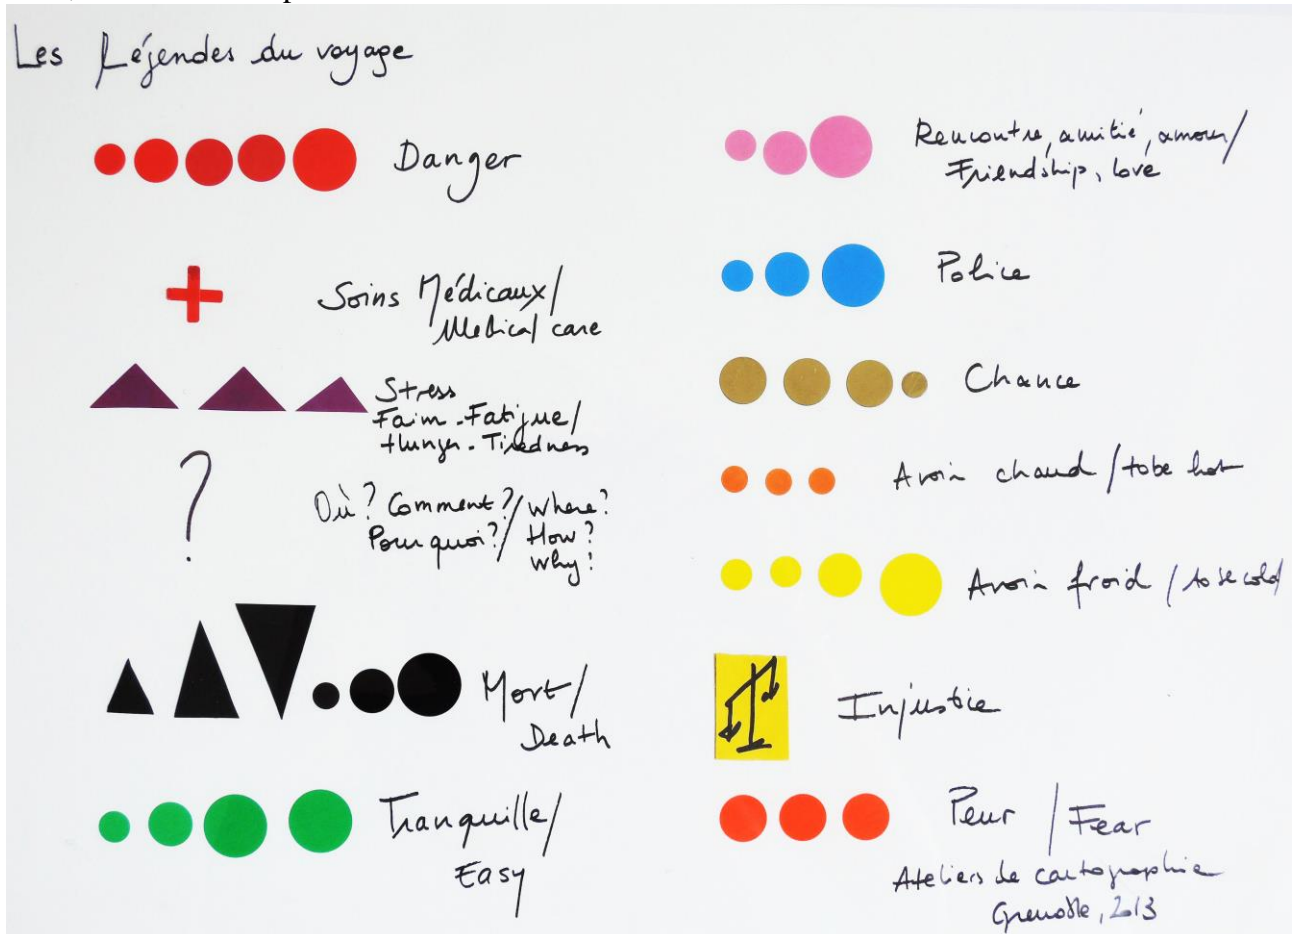 Les Légendes du voyage
Danger
Soins Médicaux/
Medical care
Stress
Faim - Fatigue/
Hunger - Tiredness
?
Où? Comment?/ Where?
Pourquoi?/ How?
Why?
Mort/
Death
Tranquille/
Easy
Rencontre, amitié, amour/
Friendship, love
Police
Chance
Avoir chaud / to be hot
Avoir froid / to be cold
Injustice
Peur / Fear
Ateliers de cartographie
Grenoble, 2013